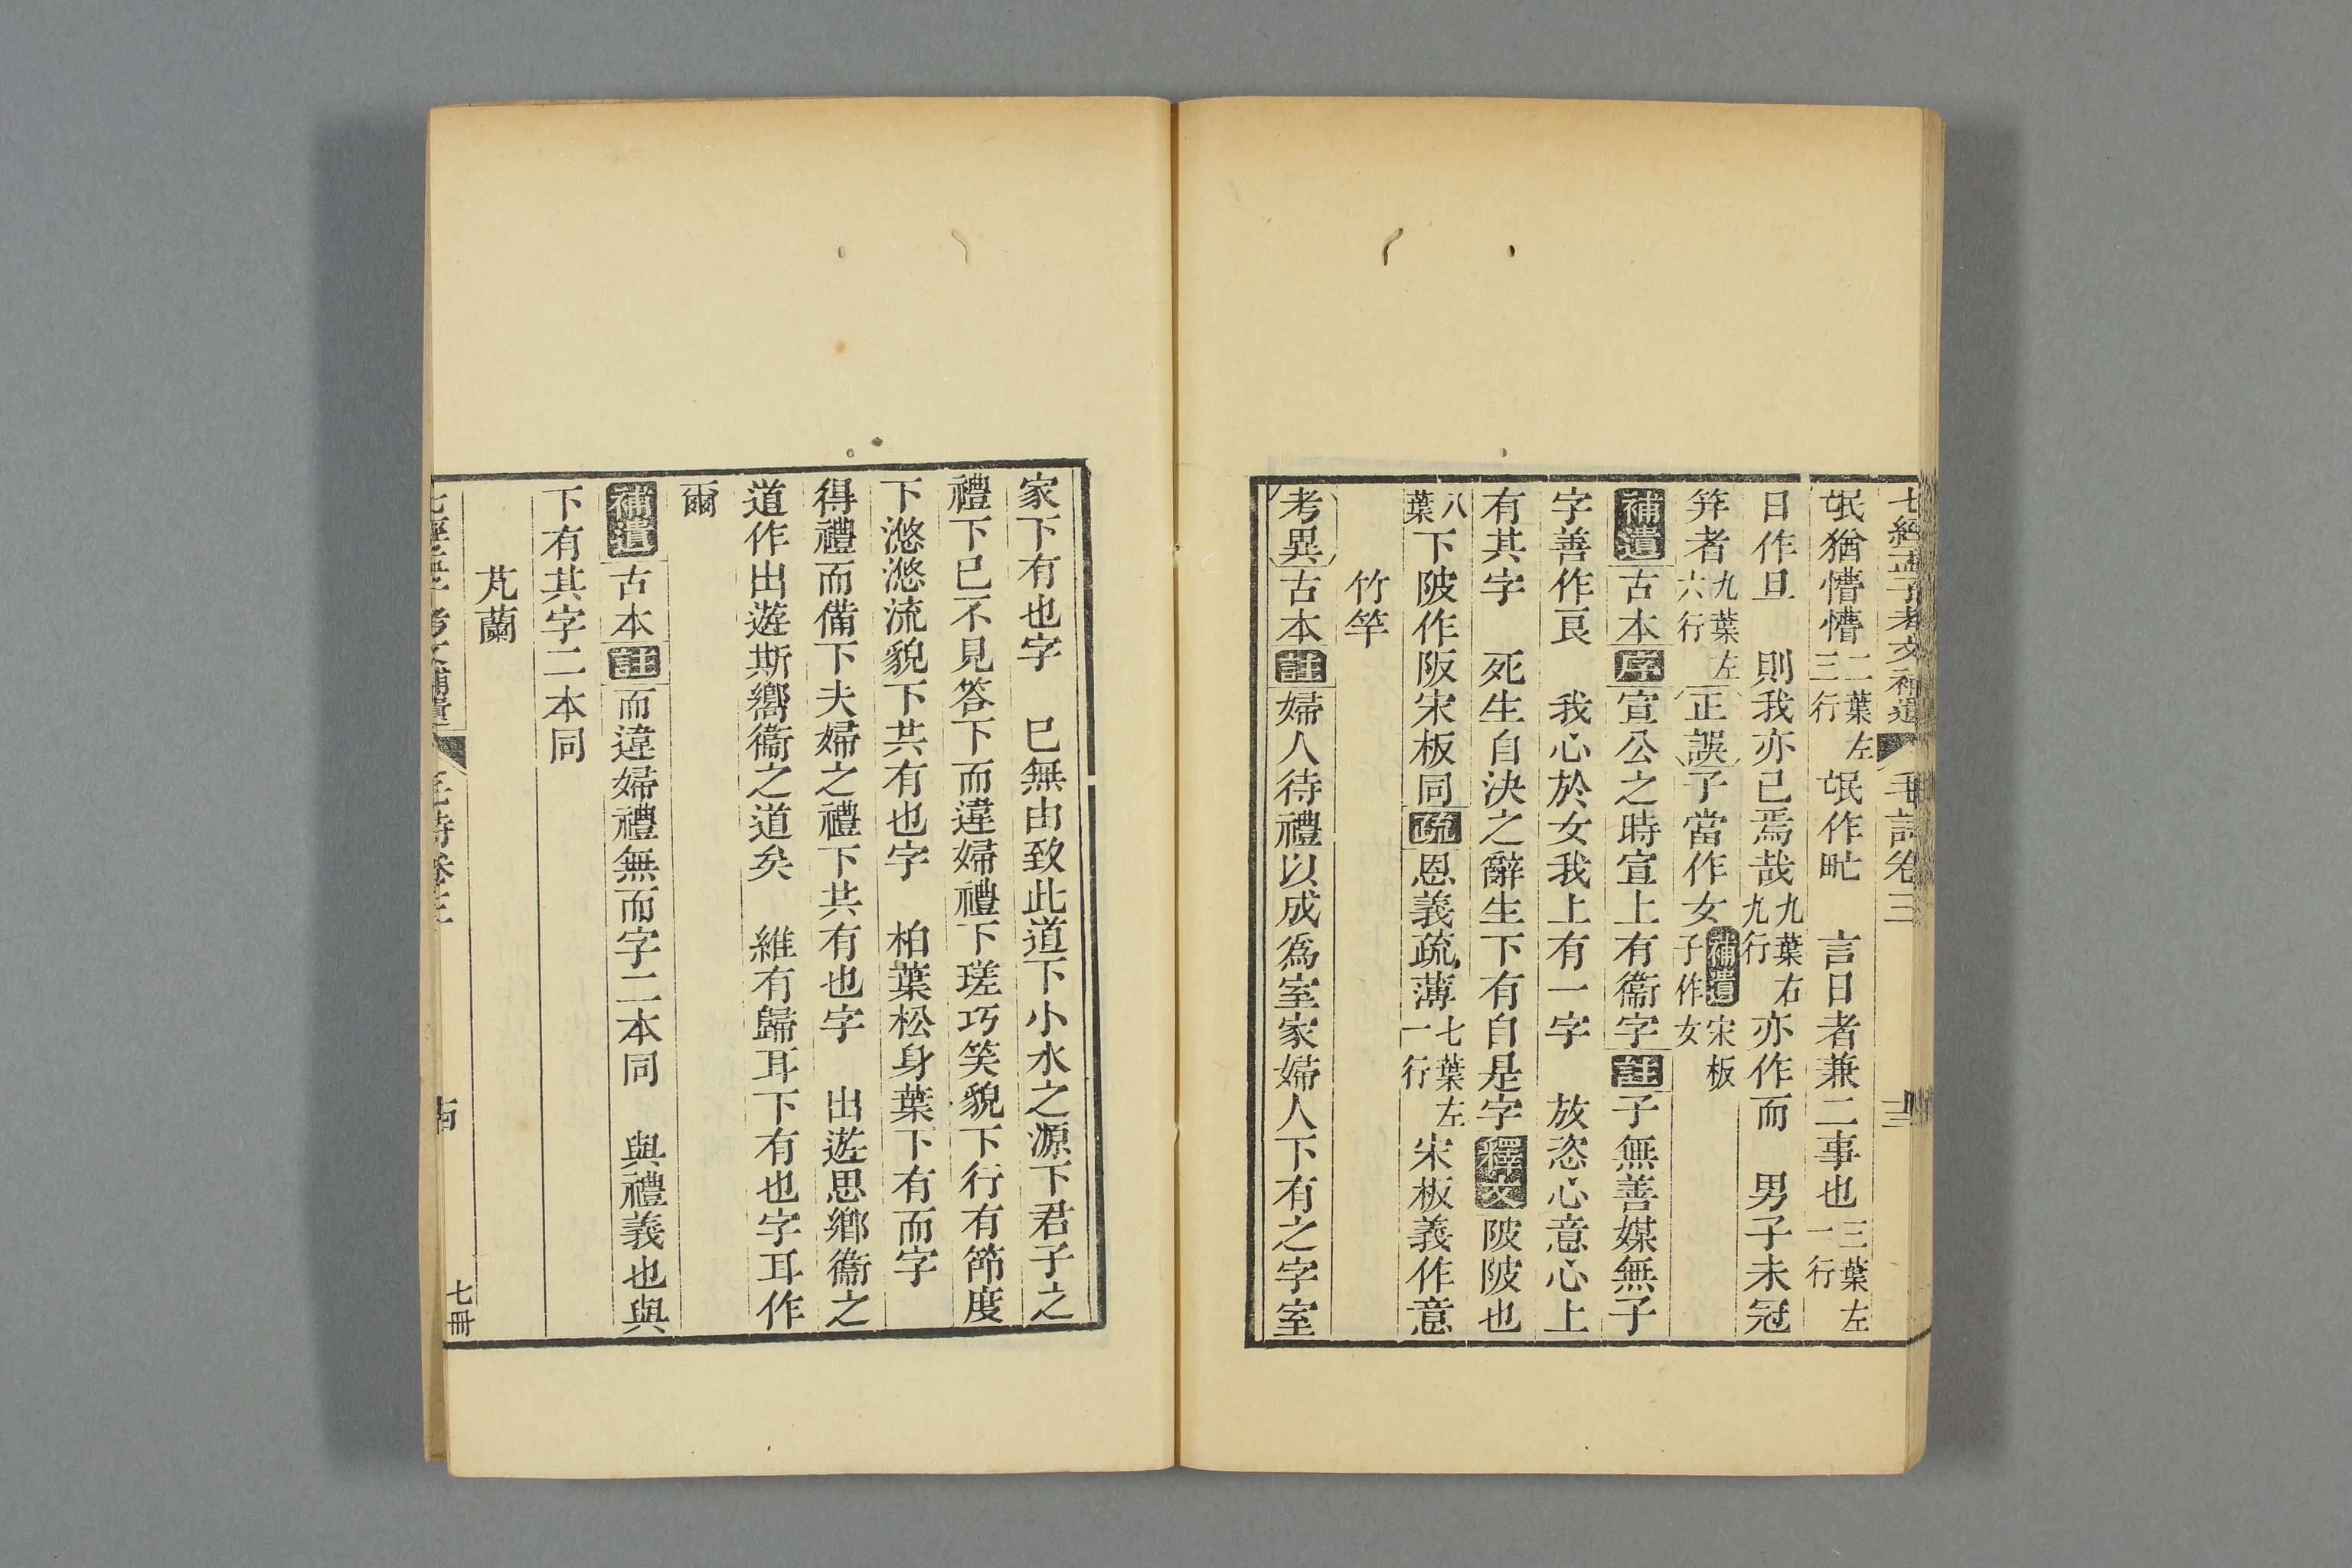 七經孟子考文補遺 毛詩卷三 十三
氓猶懵懵二葉左三行氓作甿　言日者兼二事也三葉左一行
日作旦　則我亦已焉哉九葉右九行亦作而　男子未冠
笄者九葉左六行正誤子當作女補遺宋板子作女
補遺古本序宣公之時宣上有衞字註子無善媒無子
字善作良　我心於女我上有一字　放恣心意心上
有其字　死生自決之辭生下有自是字釋文陂陂也
八葉下陂作阪宋板同疏恩義疏薄七葉左一行宋板義作意
竹竿
考異古本註婦人待禮以成爲室家婦人下有之字室
家下有也字　已無由致此道下小水之源下君子之
禮下已不見答下而違婦禮下瑳巧笑貌下行有節度
下滺滺流貌下共有也字　柏葉松身葉下有而字
得禮而備下夫婦之禮下共有也字　出遊思鄉衞之
道作出遊斯嚮衞之道矣　維有歸耳下有也字耳作
爾
補遺古本註而違婦禮無而字二本同　與禮義也與
下有其字二本同
芄蘭
七經孟子考文補遺 毛詩卷三 十四 七冊